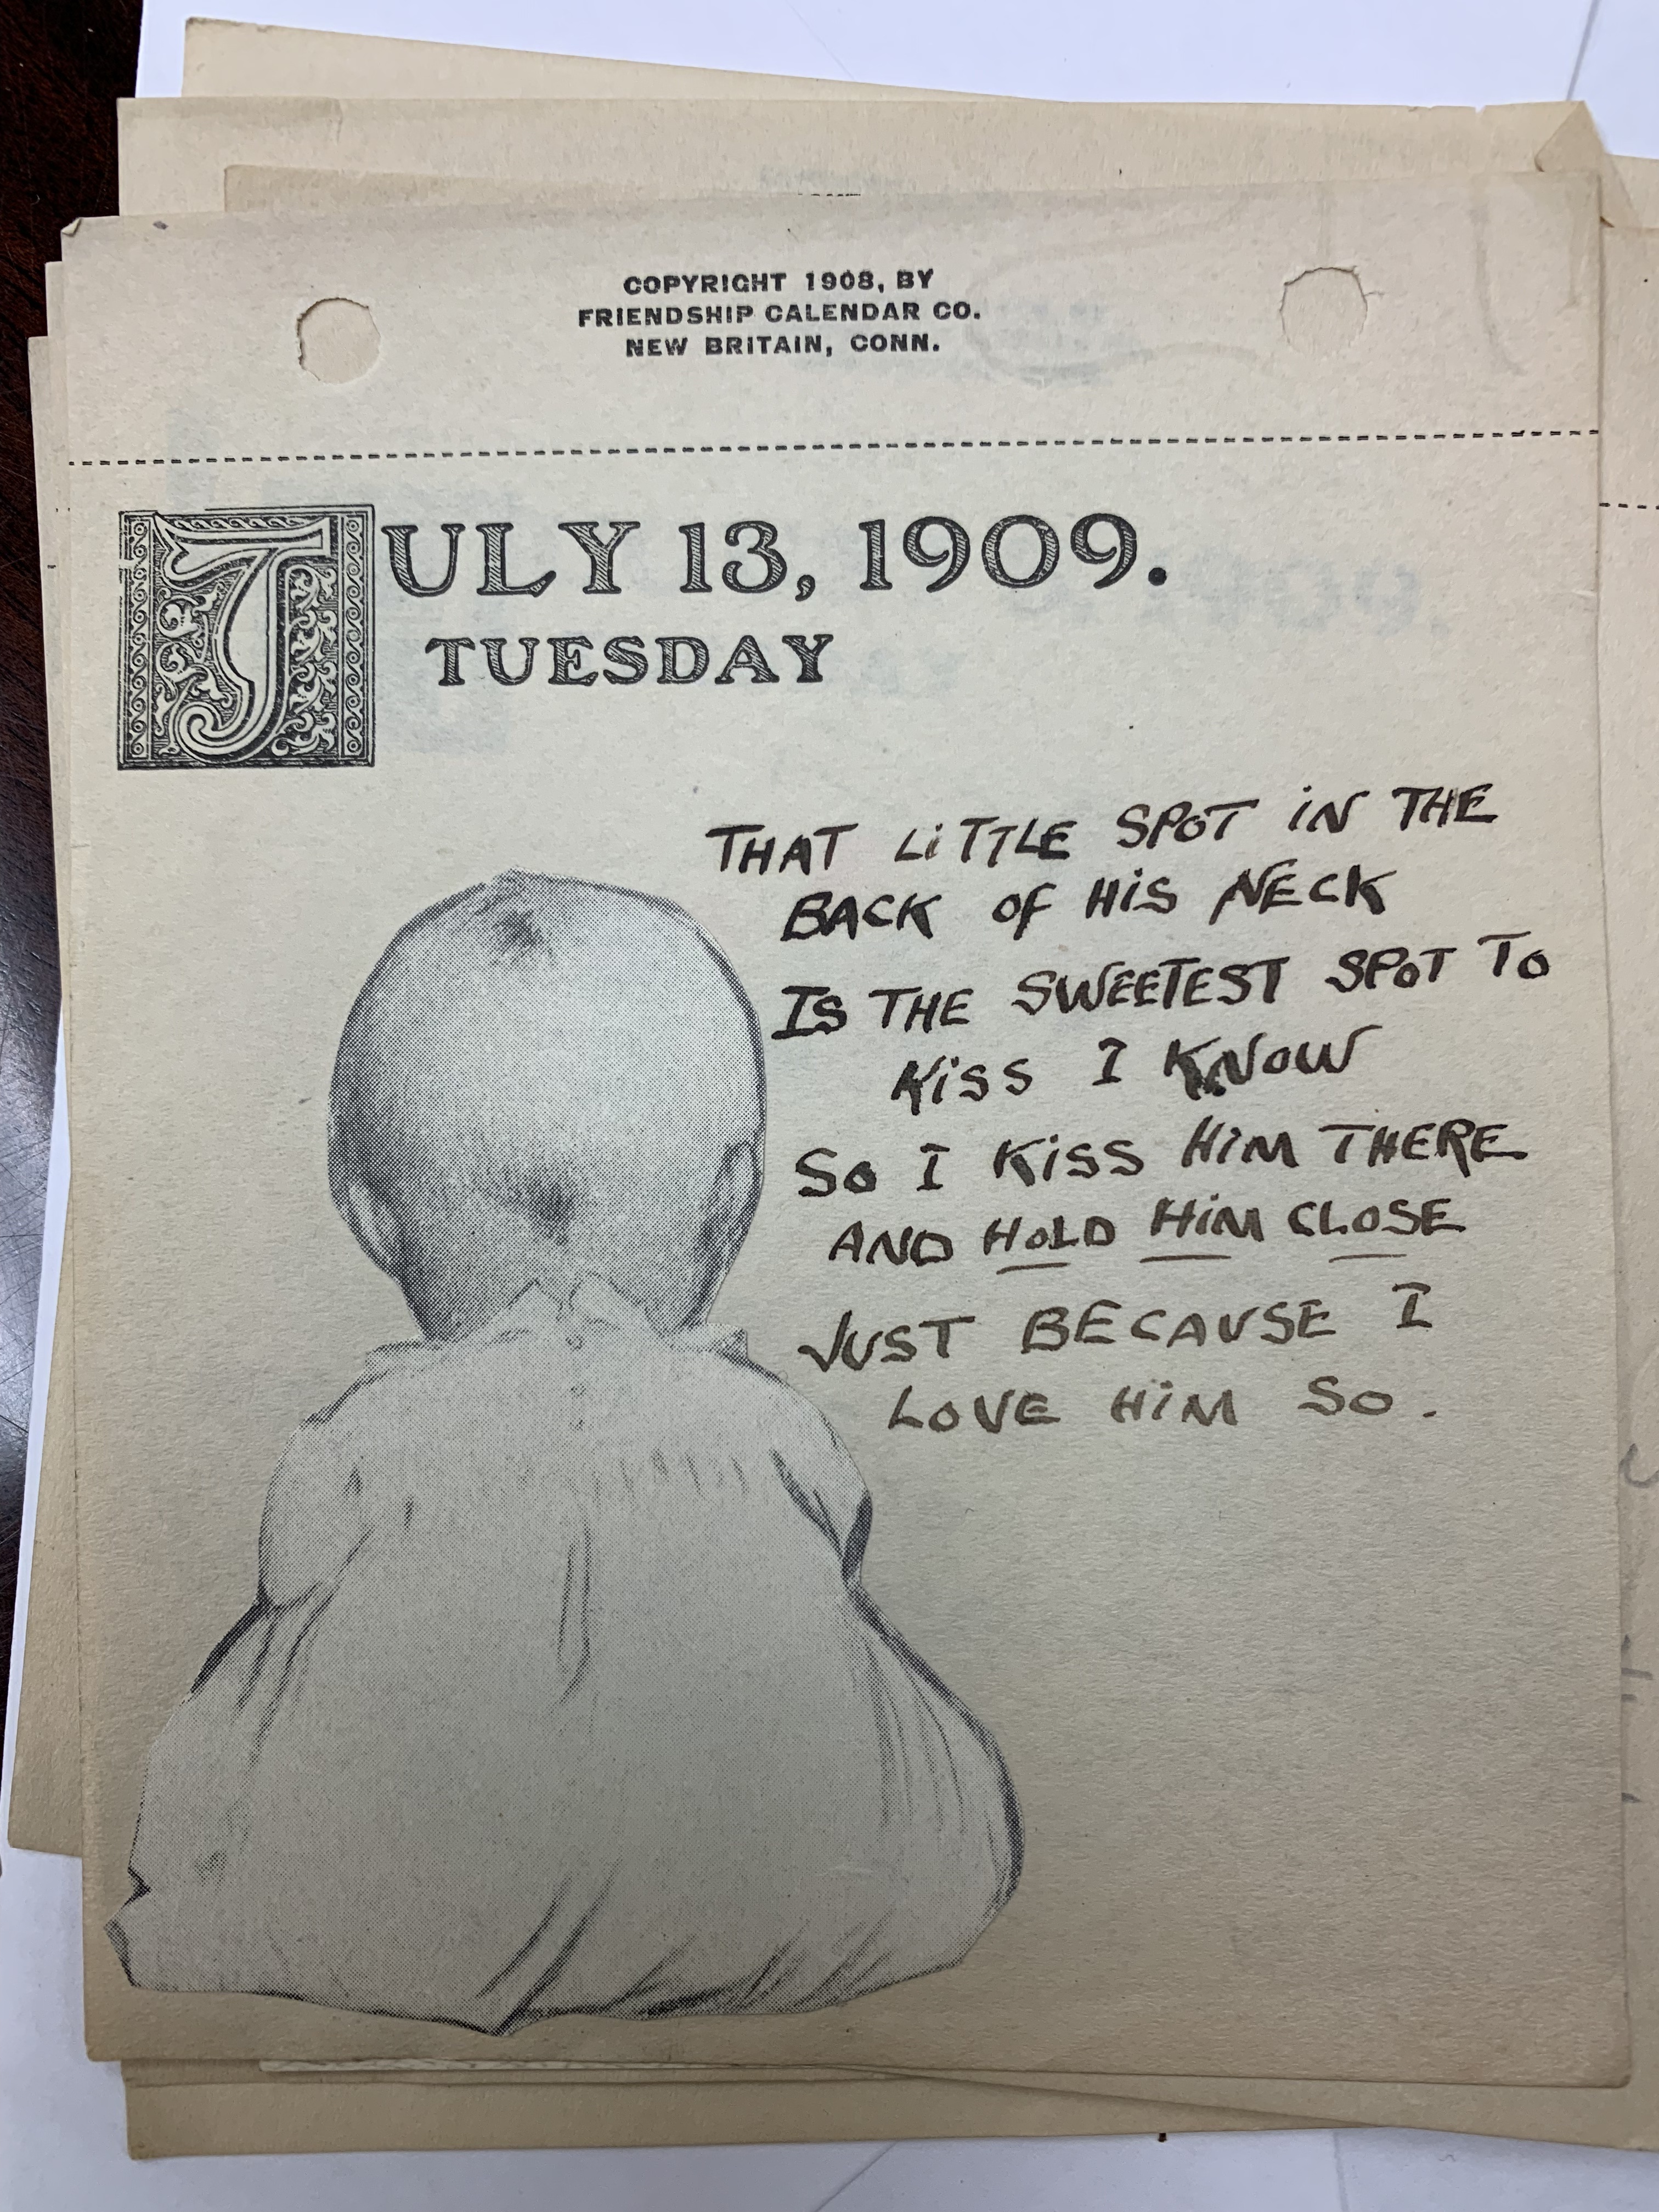 COPYRIGHT 1908, BY
FRIENDSHIP CALENDAR CO.
NEW BRITAIN, CONN.
JULY 13, 1909.
TUESDAY
THAT LiTTLE SPOT iN THE
BACK OF HiS NECK
IS THE SWEETEST SPOT TO
KiSS I KNOW
SO I KiSS HiM THERE
AND HOLD HiM CLOSE
JUST BECAUSE I
LOVE HiM SO.